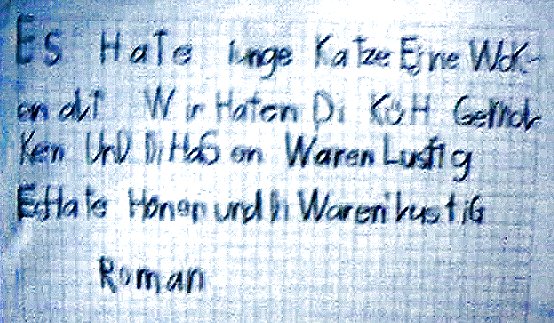 Es Hate iunge Katze Eine Wok-
en alt Wir Haten Di KüH Gemol
Ken UnD Di HaSen Waren Lustig
Es Hate Honer und Di Waren Lustig
Roman